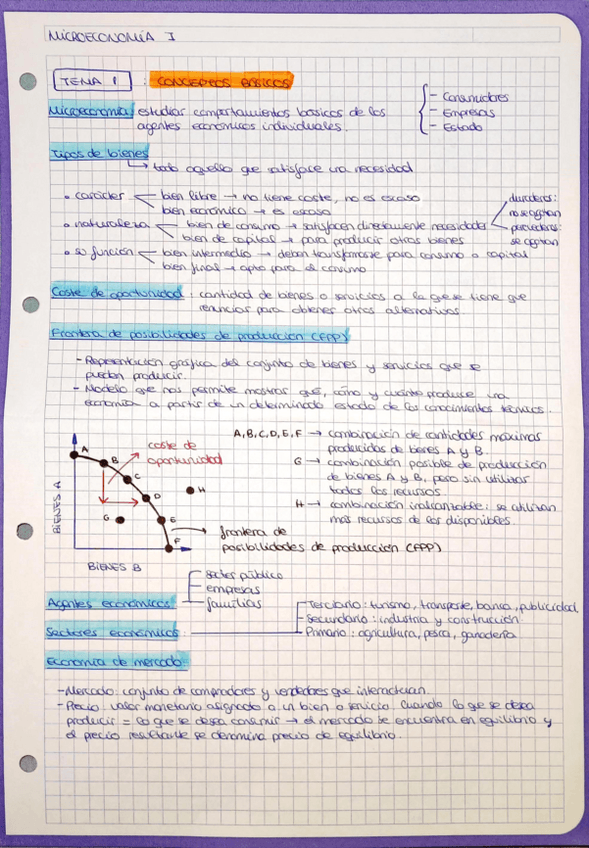 MICROECONOMÍA I
TEMA 1 : CONCEPTOS BÁSICOS
Microeconomía: estudiar comportamientos básicos de los
agentes económicos individuales.
- Consumidores
- Empresas
- Estado
Tipos de bienes
todo aquello que satisface una necesidad
• carácter
bien libre → no tiene coste, no es escaso
bien económico → es escaso
• naturaleza
bien de consumo → satisfacen directamente necesidades
duraderos:
no se agotan
perecederos:
se agotan
bien de capital → para producir otros bienes
• su función
bien intermedio → deben transformarse para consumo o capital
bien final → apto para el consumo
Coste de oportunidad: cantidad de bienes o servicios a la que se tiene que
renunciar para obtener otras alternativas.
Frontera de posibilidades de producción (FPP)
- Representación gráfica del conjunto de bienes y servicios que se
pueden producir.
- Modelo que nos permite mostrar qué, cómo y cuánto produce una
economía a partir de un determinado estado de los conocimientos técnicos.
BIENES A
A
B
C
D
E
F
G
H
coste de
oportunidad
frontera de
posibilidades de producción (FPP)
BIENES B
A,B,C,D,E,F → combinación de cantidades máximas
producidas de bienes A y B.
G → combinación posible de producción
de bienes A y B, pero sin utilizar
todos los recursos.
H → combinación inalcanzable: se utilizan
más recursos de los disponibles.
Agentes económicos
sector público
empresas
familias
Sectores económicos:
Terciario: turismo, transporte, banca, publicidad
Secundario: industria y construcción
Primario: agricultura, pesca, ganadería
Economía de mercado:
- Mercado: conjunto de compradores y vendedores que interactúan.
- Precio: valor monetario asignado a un bien o servicio. Cuando lo que se desea
producir = lo que se desea consumir → el mercado se encuentra en equilibrio y
el precio resultante se denomina precio de equilibrio.